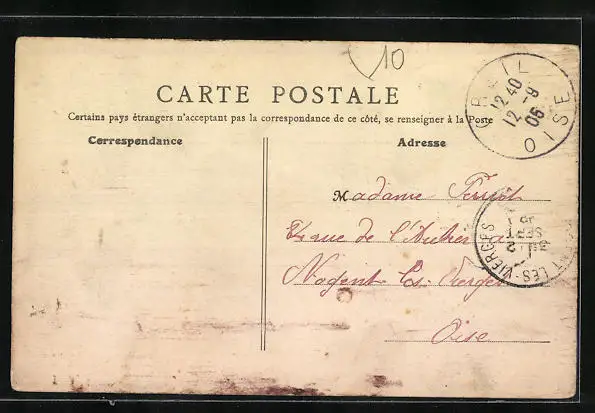 10
CARTE POSTALE
Certains pays étrangers n'acceptant pas la correspondance de ce côté, se renseigner à la Poste
Correspondance
Adresse
CREIL
12 40
12 - 9
06
OISE
Madame
rue de l'
Nogent les Vierges
Oise
LES-VIERGES
2
SEPT